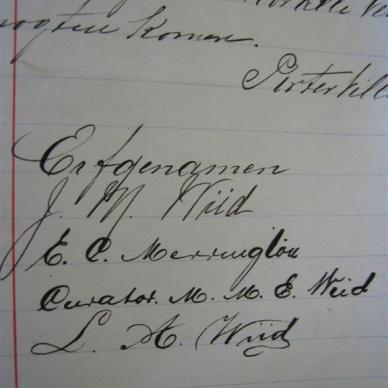 komen.
Porterville
Erfgenamen
J. N. Wiid
E. C. Merrington
Curator. M. M. E. Weid
L. A. Wiid